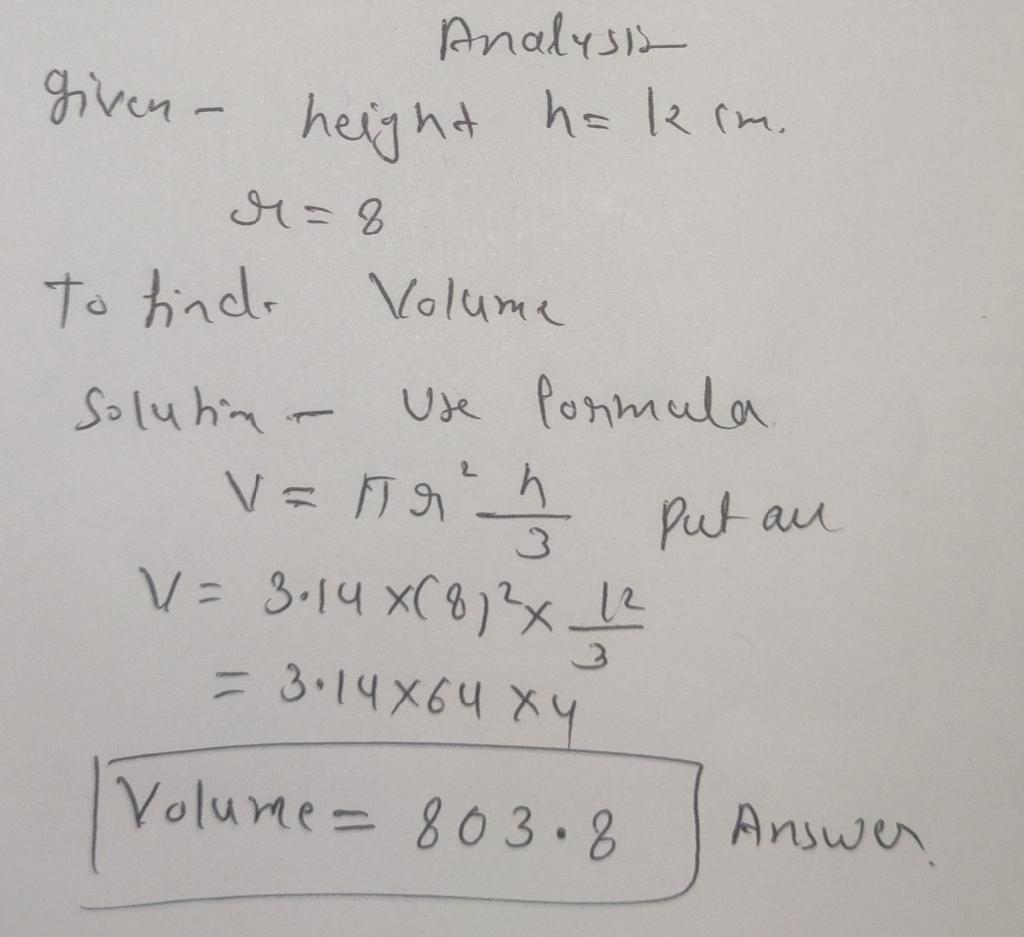 Analysis
given - height h = 12 cm.
r = 8
To find. Volume
Solution - Use formula
V = πr² h/3 put all
V = 3.14 x(8)²x 12/3
= 3.14 x 64 x 4
Volume = 803.8 Answer.